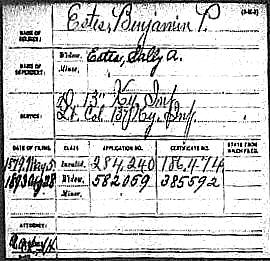 Estes, Benjamin P.
NAME OF SOLDIER:
NAME OF DEPENDENT:
Widow, Estes, Sally A.
Minor,
SERVICE:
D. 13" Ky. Inf.
Lt. Col. Ky. Inf.
DATE OF FILING. CLASS. APPLICATION NO. CERTIFICATE NO. STATE FROM WHICH FILED.
1879 May 5 Invalid, 284,240 186,474
1893 Aug 28 Widow, 582059 385592
Minor,
ATTORNEY: